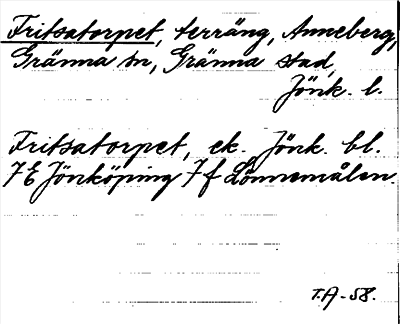 Fritsatorpet, terräng, Anneberg,
Gränna sn, Gränna stad,
Jönk. l.
Fritsatorpet, ek. Jönk. bl.
7E Jönköping 7f Lönnemålen.
T.A-58.